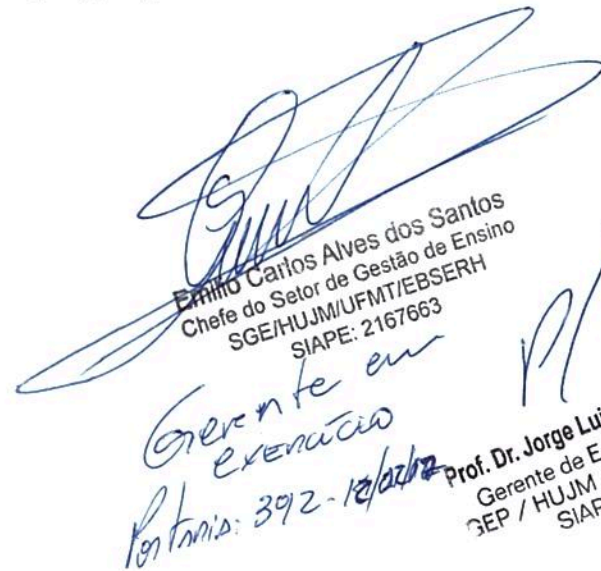 Emilio Carlos Alves dos Santos
Chefe do Setor de Gestão de Ensino
SGE/HUJM/UFMT/EBSERH
SIAPE: 2167663
Gerente em
exercício
Portaria: 392 -
P/
Prof. Dr. Jorge Lui
Gerente de E
GEP / HUJM
SIAP